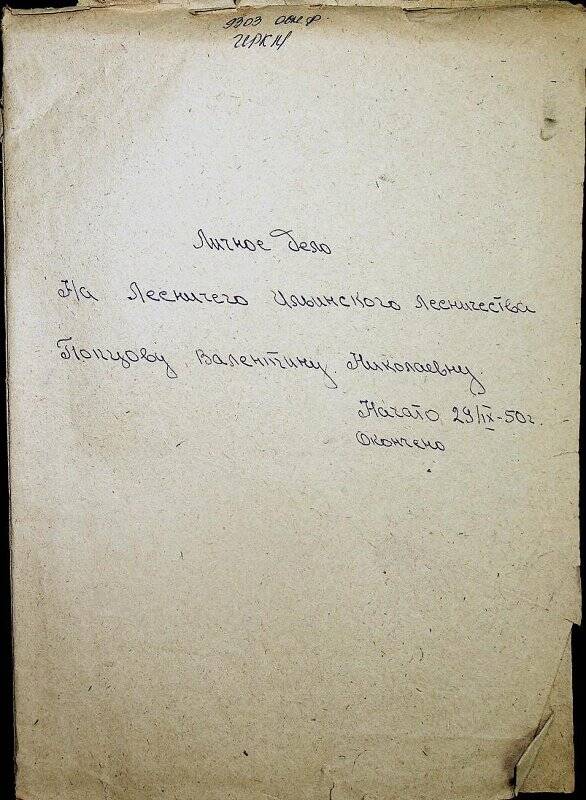 9903 осн.ф.
ИРКМ
Личное дело
На Лесничего Ильинского лесничества
Попцову Валентину Николаевну.
Начато 29/IX-50г.
Окончено